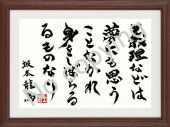 義理などは
夢にも思う
ことなかれ
身をしばらる
るものなり
坂本龍馬